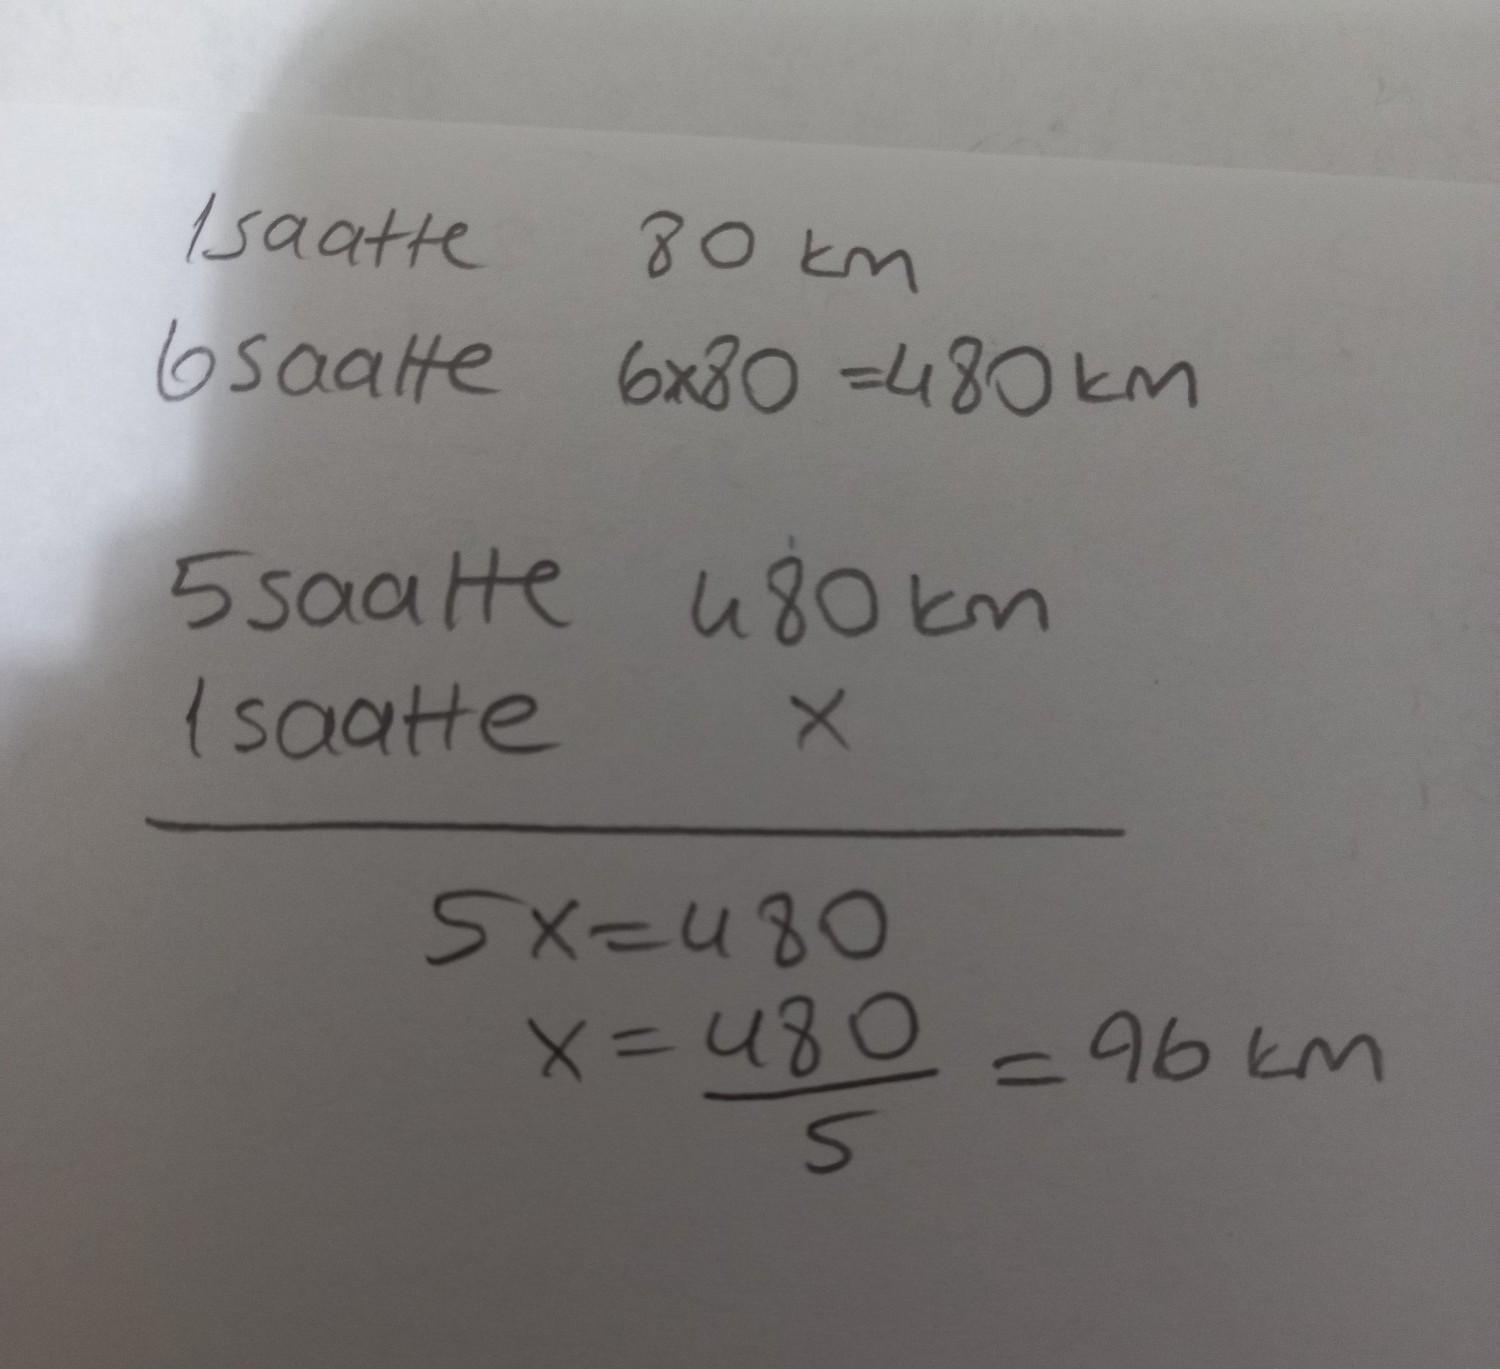 1 saatte 80 km
6 saatte 6x80 = 480 km
5 saatte 480 km
1 saatte x
5x = 480
x = 480/5 = 96 km